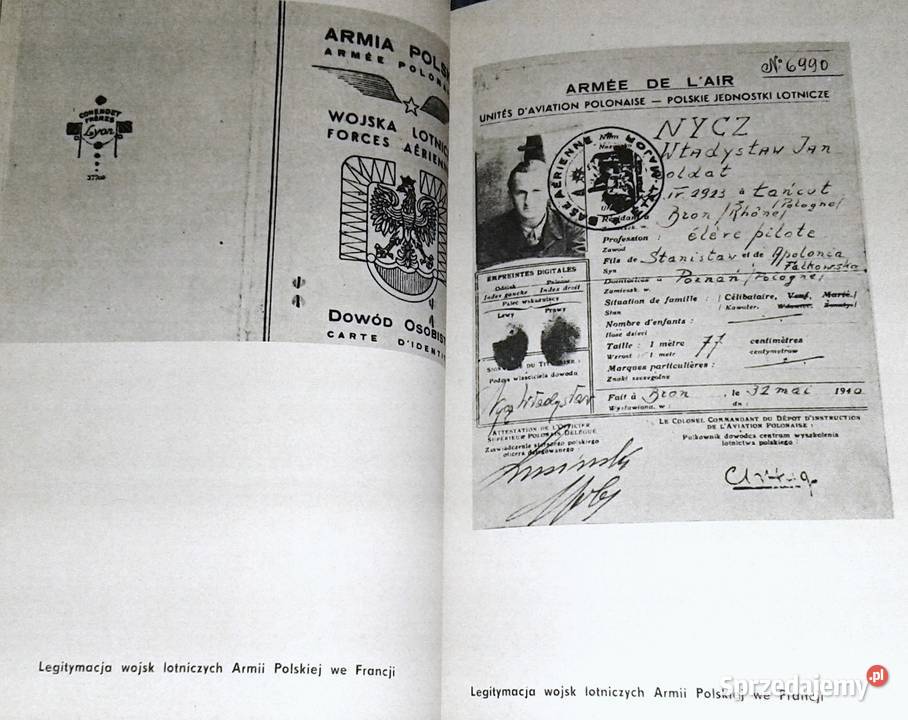 COMENGET
FRÈRES
Lyon
ARMIA POLSK
ARMÉE POLONA
WOJSKA LOTNIC
FORCES AÉRIEN
DOWÓD OSOBIS
CARTE D'IDENTI
Legitymacja wojsk lotniczych Armii Polskiej we Francji
No 6990
ARMÉE DE L'AIR
UNITÉS D'AVIATION POLONAISE — POLSKIE JEDNOSTKI LOTNICZE
BASE AÉRIENNE
Nom
NYCZ
Władysław Jan
oldat
IV 1923 à Łańcut
/Pologne/
Bron /Rhône/
Profession : élève pilote
Zawód
Fils de Stanisław et de Apolonia
Syn
Falkowska
Domicilié à Poznań /Pologne/
Zamieszk. w
Situation de famille : Célibataire, Veuf, Marié
Stan Kawaler, Wdowiec, Żonaty
Nombre d'enfants :
Ilość dzieci
Taille : 1 mètre 77 centimètres
Wzrost : 1 metr centymetrów
Marques particulières :
Znaki szczególne
Fait à Bron, le 32 mai 1940
Wystawiono, w : dn :
EMPREINTES DIGITALES
Odcisk Palców
Index gauche Index droit
Palec wskazujący
Lewy Prawy
SIGNATURE DU TITULAIRE :
Podpis właściciela dowodu
Nycz Władysław
ATTESTATION DE L'OFFICIER
SUPÉRIEUR POLONAIS DÉLÉGUÉ
Zaświadczenie starszego polskiego
oficera delegowanego
LE COLONEL COMMANDANT DU DÉPÔT D'INSTRUCTION
DE L'AVIATION POLONAISE :
Pułkownik dowódca centrum wyszkolenia
lotnictwa polskiego :
Legitymacja wojsk lotniczych Armii Polskiej we Francji
Sprzedajemy.pl